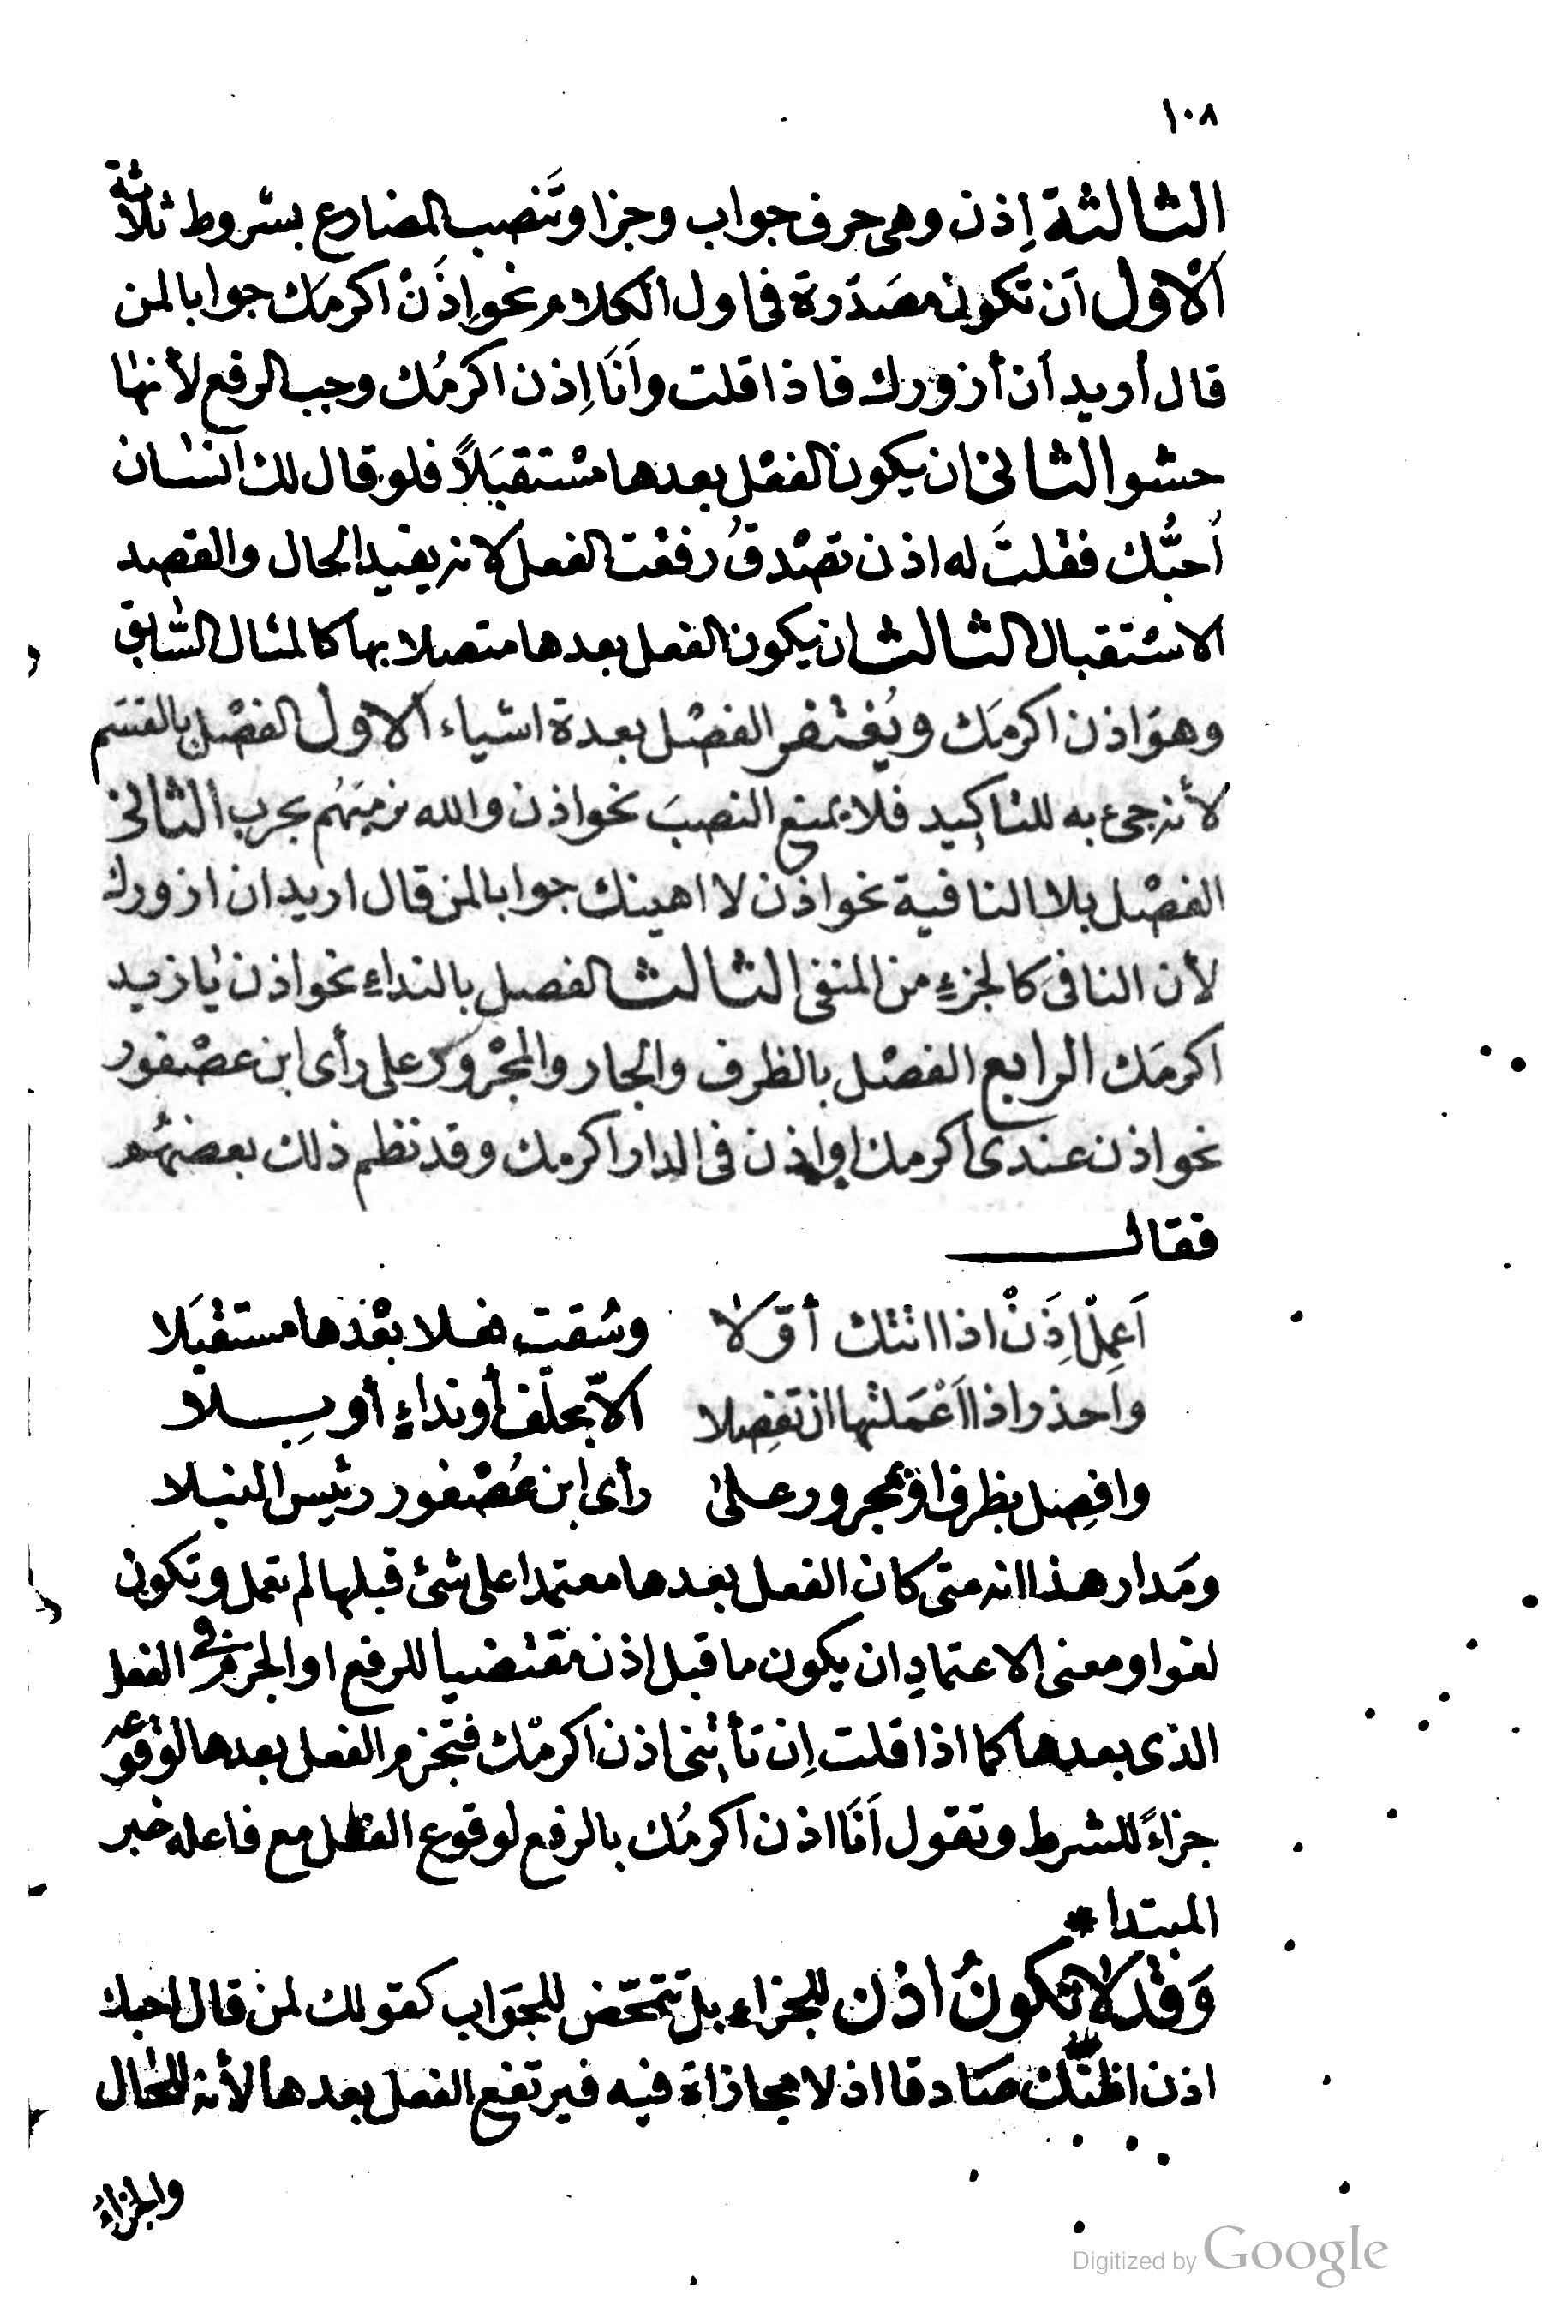 ١٠٨
الثالثة إذن وهى حرف جواب وجزا وتَنصب المضارع بشروط ثلاثة
الاول اَن تكون مصَدّرة فى اول الكلام نحو إذَنْ اكرمَك جوابا لمن
قال أريد أن أزورك فاذا قلت واَنَا إذن اكرمُك وجب الرفع لأنها
حشو الثانى ان يكون الفعْل بعدها مسْتقبَلاً فلو قال لك انسان
اُحبُّك فقلتَ له اذن تصْدقُ رفعْت الفعل لانه يفيد الحال والقصد
الاسْتقبال الثالث ان يكون الفعل بعدها متصلا بها كالمثال السَّابق
وهوَ اذن اكرمَك ويُغْتفر الفصْل بعدة اشياء الاول الفصْل بالقسَم
لأنه جىء به للتاكيد فلا يمنع النصبَ نحو اذن والله نرميَهُم بحرب الثانى
الفصْل بلا النافية نحو اذن لا اهينك جوابا لمن قال اريد ان ازورك
لأن النافى كالجزءِ من المنفى الثالث الفصل بالنداءِ نحو اذن يا زيد
اكرمَك الرابع الفصْل بالظرف والجار والمجْرور على رأى ابن عصْفور
نحو اذن عندى اكرمك او اذن فى الدار اكرمك وقد نظم ذلك بعضهُم
فقال
اَعمِلْ إذَنْ اذا اتتك أوّلا وسُقت فعلا بعْدها مستقْبَلا
واحذر اذا اَعْمَلتْها ان تفصِلا الاّ بحلْف أو نداءٍ أو بِلا
وافصِل بظرف او بمجرور على رأى ابن عُصْفور رئيس النبلا
ومَدار هذا انه متى كان الفعل بعدها معتمدا على شئ قبلها لم تعمل وتكون
لغوا ومعنى الاعتمادِ ان يكون ما قبل اذن مقتضيا للرفع او الجزم فى الفعل
الذى بعدها كما اذا قلت اِن تأتِنى اذن اكرمْك فتجزم الفعل بعدها لوقوعه
جزاءً للشرط وتقول اَنَا اذن اكرمُك بالرفع لوقوع الفعل مع فاعله خبر
المبتدا *
وَقدْ لا تكونُ اذن للجزاءِ بل تتمحّض للجوَاب كقولك لمن قال احبك
اذن اظنّك صَادقا اذ لا مجازاة فيه فيرتفع الفعل بعدها لأنه للحال
والجزاءُ
Digitized by Google